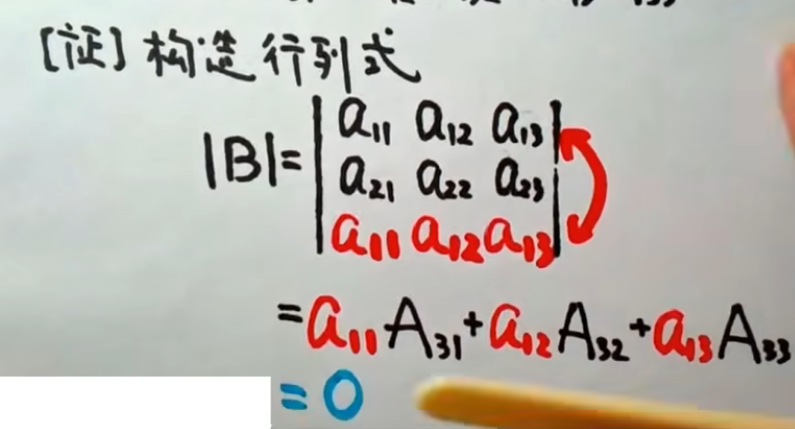 [证] 构造行列式
|B|=
a₁₁ a₁₂ a₁₃
a₂₁ a₂₂ a₂₃
a₁₁ a₁₂ a₁₃
=a₁₁A₃₁+a₁₂A₃₂+a₁₃A₃₃
=0